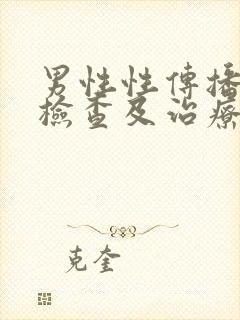 男性性傳播
檢查及治療
克奎